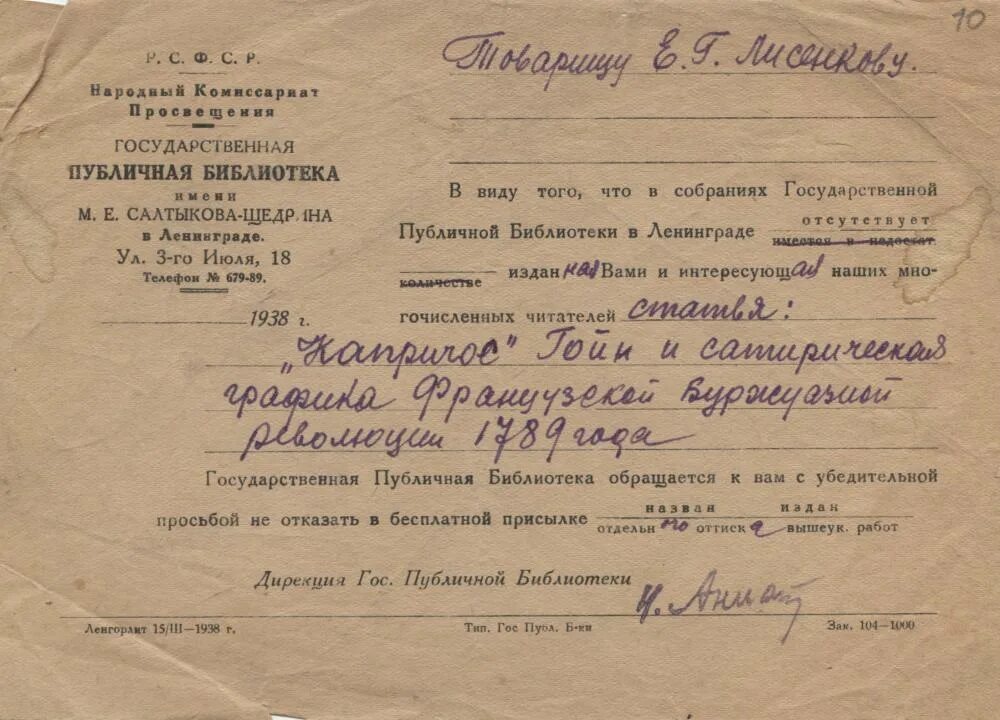 10
Р. С. Ф. С. Р.
Народный Комиссариат
Просвещения
ГОСУДАРСТВЕННАЯ
ПУБЛИЧНАЯ БИБЛИОТЕКА
имени
М. Е. САЛТЫКОВА-ЩЕДРИНА
в Ленинграде.
Ул. 3-го Июля, 18
Телефон № 679-89.
1938 г.
Товарищу Е. Г. Лисенкову.
В виду того, что в собраниях Государственной
Публичной Библиотеки в Ленинграде отсутствует
имеется в недостат.
количестве изданная Вами и интересующая наших мно-
гочисленных читателей статья:
„Капричос" Гойи и сатирическая
графика Французской Буржуазной
революции 1789 года
Государственная Публичная Библиотека обращается к вам с убедительной
просьбой не отказать в бесплатной присылке назван издан
отдельного оттиска вышеук. работ
Дирекция Гос. Публичной Библиотеки
Ленгорлит 15/III—1938 г.
Тип. Гос Публ. Б-ки
Зак. 104—1000